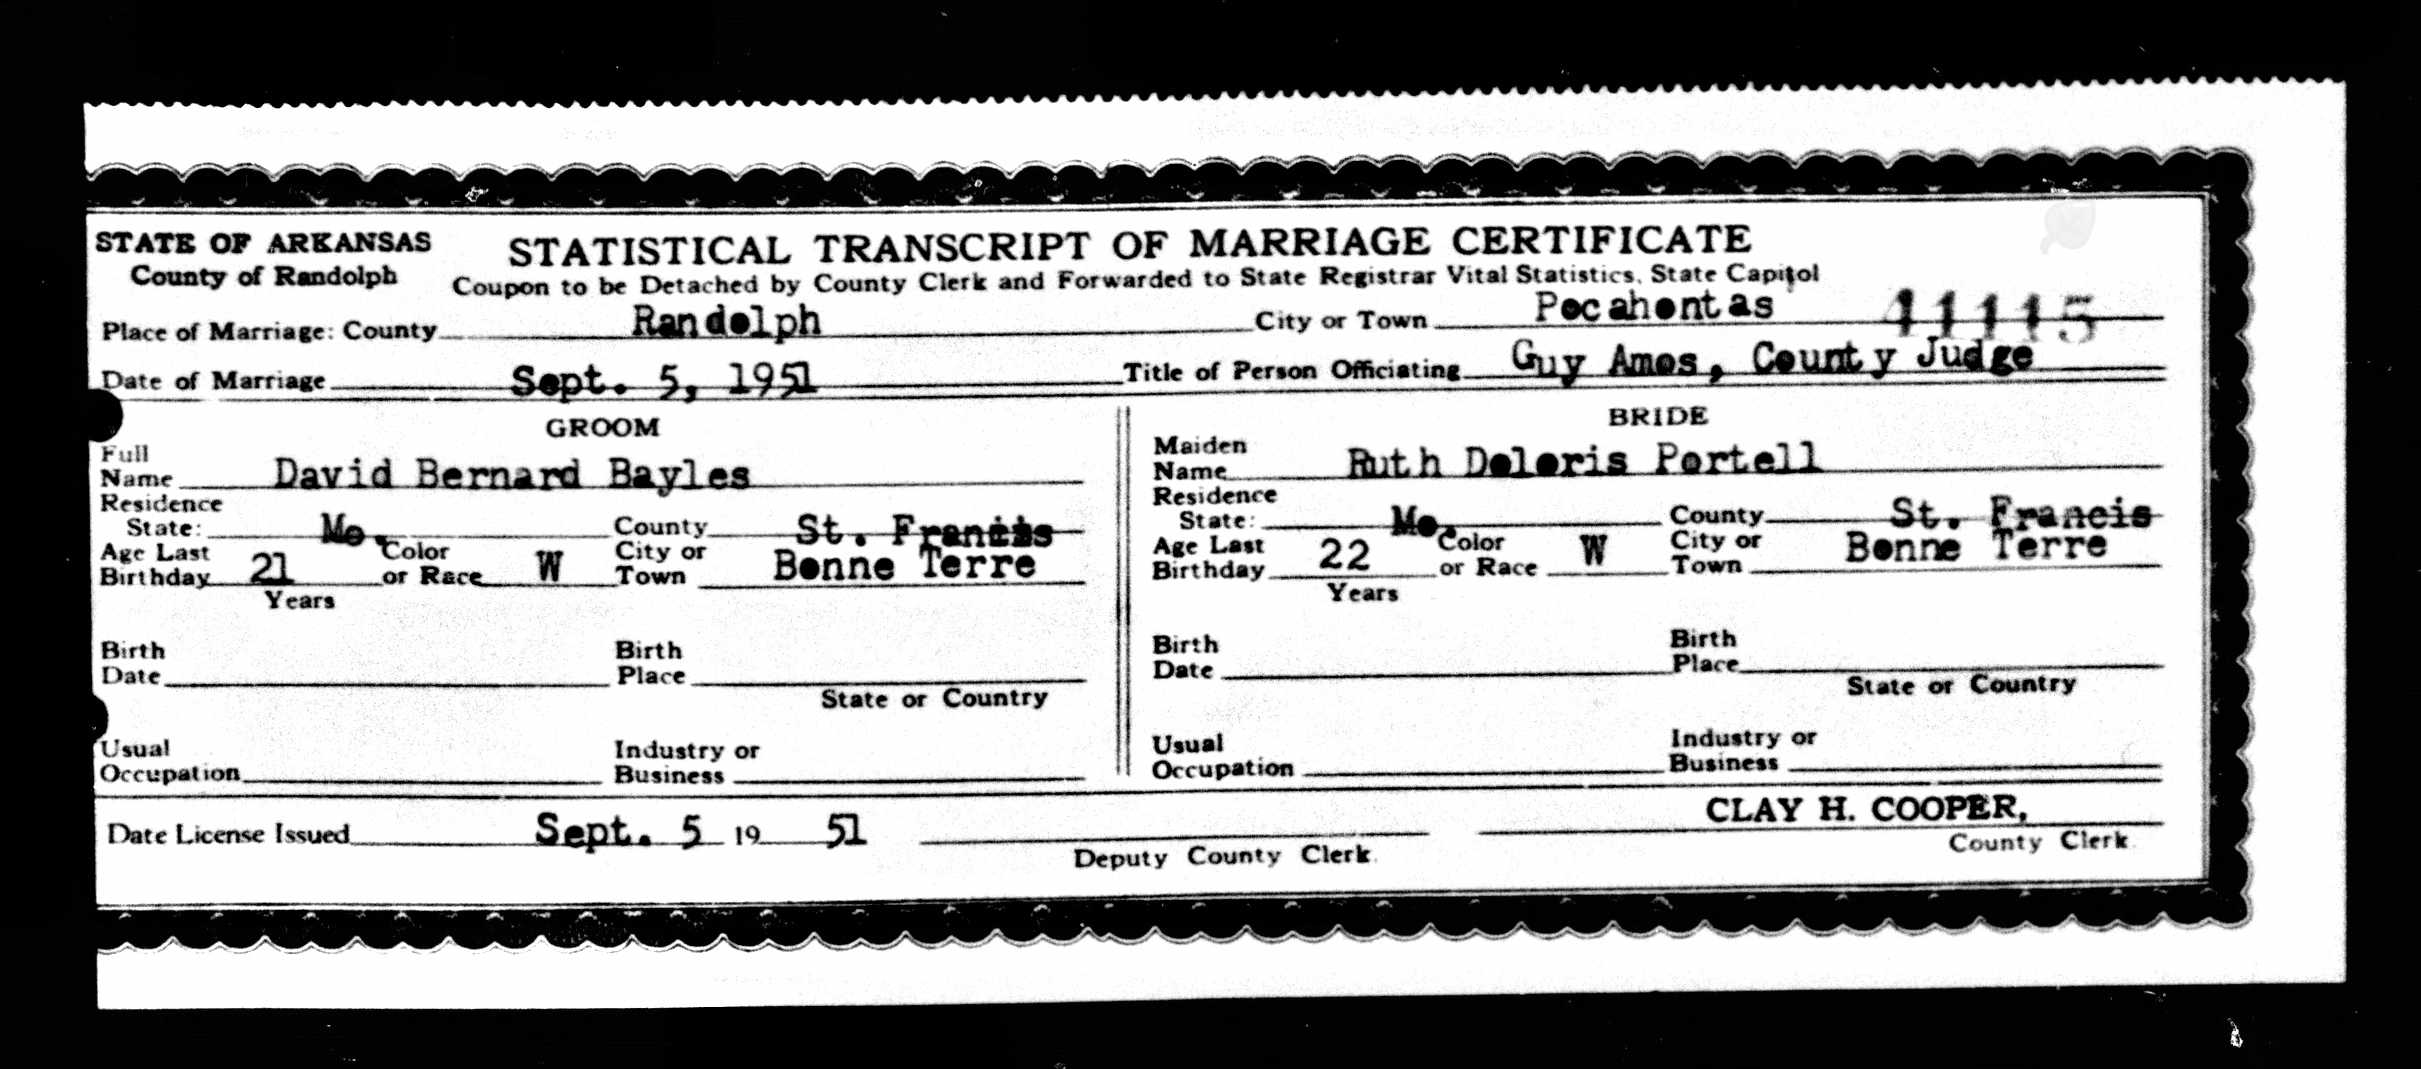 STATE OF ARKANSAS
County of Randolph
STATISTICAL TRANSCRIPT OF MARRIAGE CERTIFICATE
Coupon to be Detached by County Clerk and Forwarded to State Registrar Vital Statistics, State Capitol
Place of Marriage: County Randolph City or Town Pocahontas 11115
Date of Marriage Sept. 5, 1951 Title of Person Officiating Guy Amos, County Judge
GROOM
Full
Name David Bernard Bayles
Residence
State: Mo. County St. Francis
Age Last Birthday 21 Years Color or Race W City or Town Bonne Terre
Birth Date Birth Place
State or Country
Usual Occupation Industry or Business
BRIDE
Maiden
Name Ruth Doloris Portell
Residence
State: Mo. County St. Francis
Age Last Birthday 22 Years Color or Race W City or Town Bonne Terre
Birth Date Birth Place
State or Country
Usual Occupation Industry or Business
Date License Issued Sept. 5 19 51
Deputy County Clerk.
CLAY H. COOPER,
County Clerk.